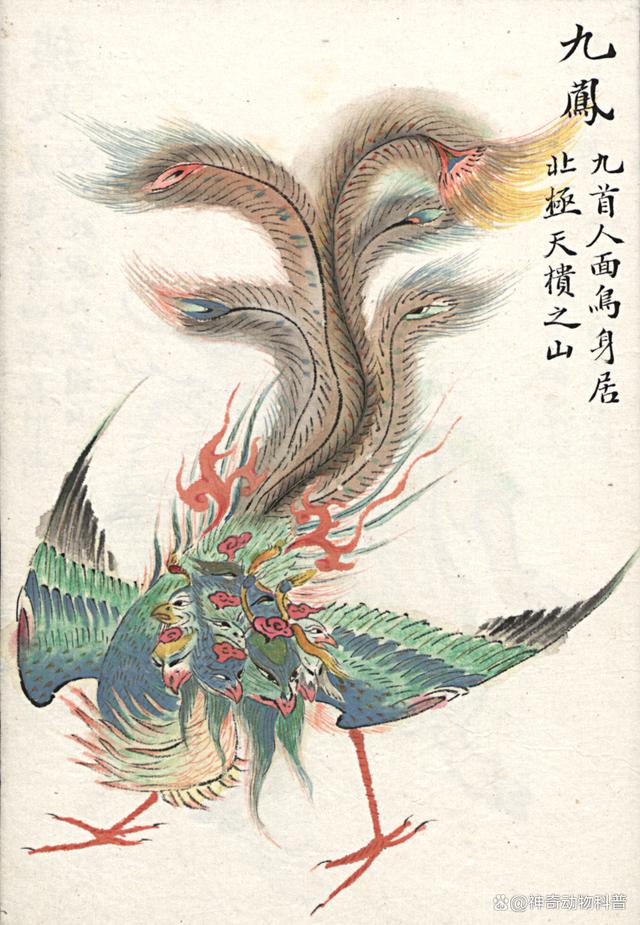 九鳳
九首人面鳥身居
北極天樻之山
@神奇动物科普